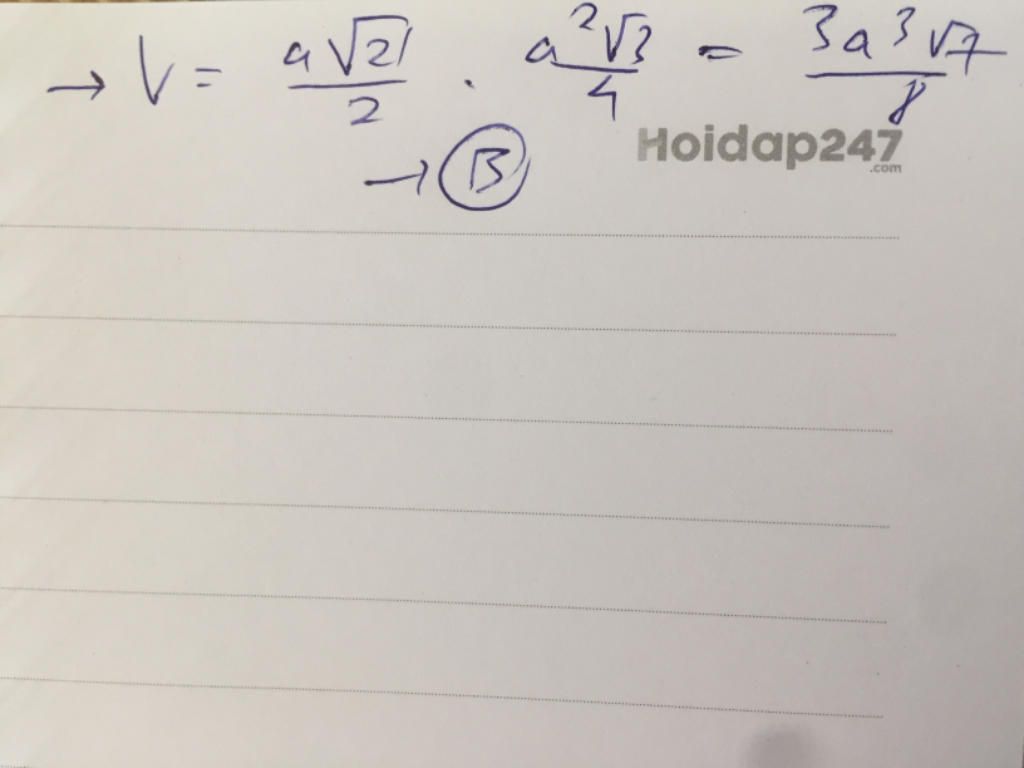 → V = a√21/2 . a²√3/4 = 3a³√7/8
Hoidap247
.com
→ B